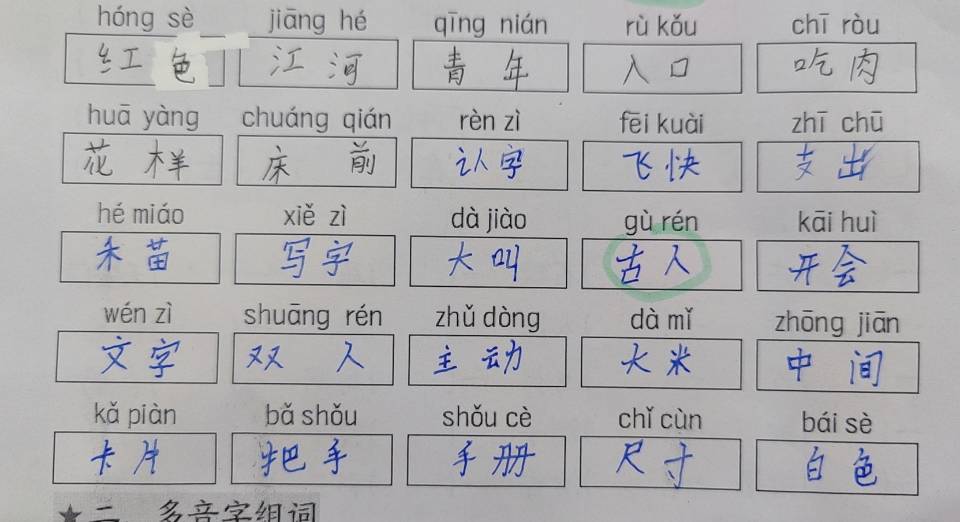 hóng sè jiāng hé qīng nián rù kǒu chī ròu
红色 江河 青年 入口 吃肉
huā yàng chuáng qián rèn zì fēi kuài zhī chū
花样 床前 认字 飞快 支出
hé miáo xiě zì dà jiào gù rén kāi huì
禾苗 写字 大叫 古人 开会
wén zì shuāng rén zhǔ dòng dà mǐ zhōng jiān
文字 双人 主动 大米 中间
kǎ piàn bǎ shǒu shǒu cè chǐ cùn bái sè
卡片 把手 手册 尺寸 白色
★ 二、多音字组词